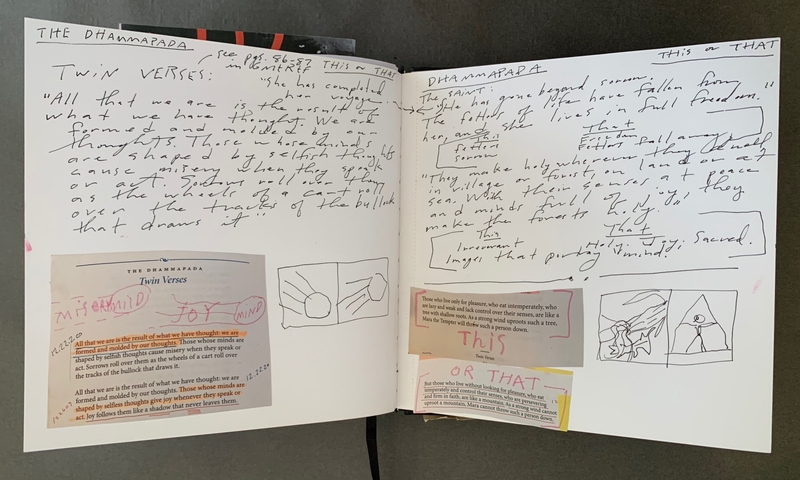 THE DHAMMAPADA
see pgs. 86-87
THIS or THAT
TWIN VERSES:
"She has completed
her voyage
"All that we are is the result of
what we have thought. We are
formed and molded by our
thoughts. Those whose minds
are shaped by selfish thoughts
cause misery when they speak
or act. Sorrows roll over them
as the wheels of a cart roll
over the tracks of the bullock
that draws it"
THE DHAMMAPADA
Twin Verses
MISERY MIND
JOY MIND
12.22.20
All that we are is the result of what we have thought: we are
formed and molded by our thoughts. Those whose minds are
shaped by selfish thoughts cause misery when they speak or
act. Sorrows roll over them as the wheels of a cart roll over
the tracks of the bullock that draws it.
12.22.20
All that we are is the result of what we have thought: we are
formed and molded by our thoughts. Those whose minds are
shaped by selfless thoughts give joy whenever they speak or
act. Joy follows them like a shadow that never leaves them.
THIS or THAT
DHAMMAPADA
The SAINT:
She has gone beyond sorrow.
The fetters of life have fallen from
her, and she lives in full freedom."
This
That
fetters
Freedom
sorrow
Fetters fall away
"They make holy wherever they dwell,
in village or forest, on land or at
sea. With their senses at peace
and minds full of joy, they
make the forests holy."
This
That
Irreverent
Holy. Joy. Sacred.
Images that portray mind.
Those who live only for pleasure, who eat intemperately, who
are lazy and weak and lack control over their senses, are like a
tree with shallow roots. As a strong wind uproots such a tree,
Mara the Tempter will throw such a person down.
This
Twin Verses
OR THAT
But those who live without looking for pleasure, who eat
temperately and control their senses, who are persevering
and firm in faith, are like a mountain. As a strong wind cannot
uproot a mountain, Mara cannot throw such a person down.